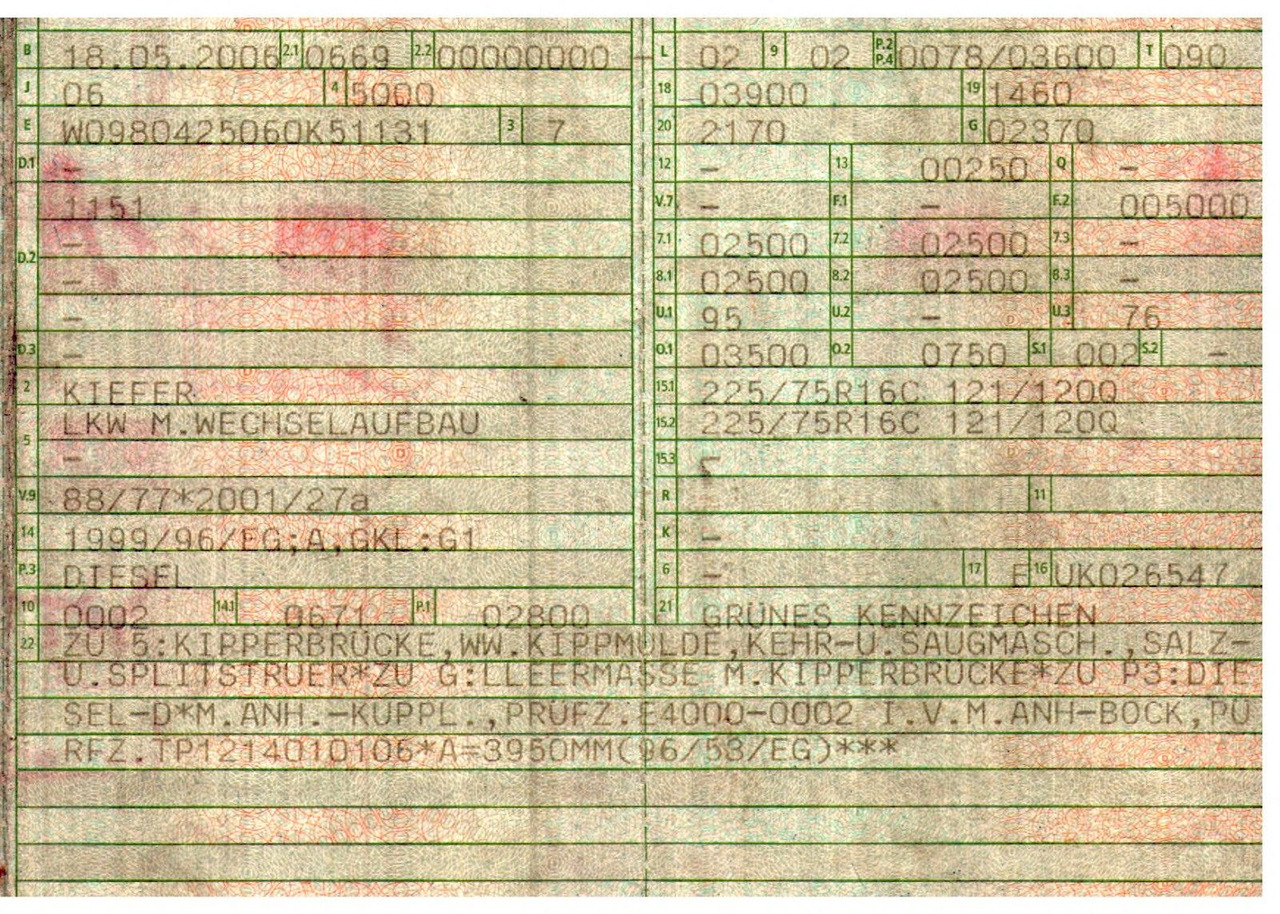 B 18.05.2006 2.1 0669 2.2 00000000
J 06 4 5000
E W0980425060K51131 3 7
D.1 –
1151
–
D.2
–
–
D.3 –
2 KIEFER
LKW M.WECHSELAUFBAU
5
–
V.9 88/77*2001/27a
14 1999/96/EG;A,GKL:G1
P.3 DIESEL
10 0002 14.1 0671 P.1 02800
L 02 9 02 P.2 P.4 0078/03600 T 090
18 03900 19 1460
20 2170 G 02370
12 – 13 00250 Q –
V.7 – F.1 – F.2 005000
7.1 02500 7.2 02500 7.3 –
8.1 02500 8.2 02500 8.3 –
U.1 95 U.2 – U.3 76
O.1 03500 O.2 0750 S.1 002 S.2 –
15.1 225/75R16C 121/120Q
15.2 225/75R16C 121/120Q
15.3 –
R 11
K –
6 – 17 E 16 UK026547
21 GRÜNES KENNZEICHEN
22 ZU 5:KIPPERBRÜCKE,WW.KIPPMULDE,KEHR-U.SAUGMASCH.,SALZ-
U.SPLITSTRUER*ZU G:LLEERMASSE M.KIPPERBRÜCKE*ZU P3:DIE
SEL-D*M.ANH.-KUPPL.,PRÜFZ.E4000-0002 I.V.M.ANH-BOCK,PÜ
RFZ.TP1214010106*A=3950MM(96/53/EG)***